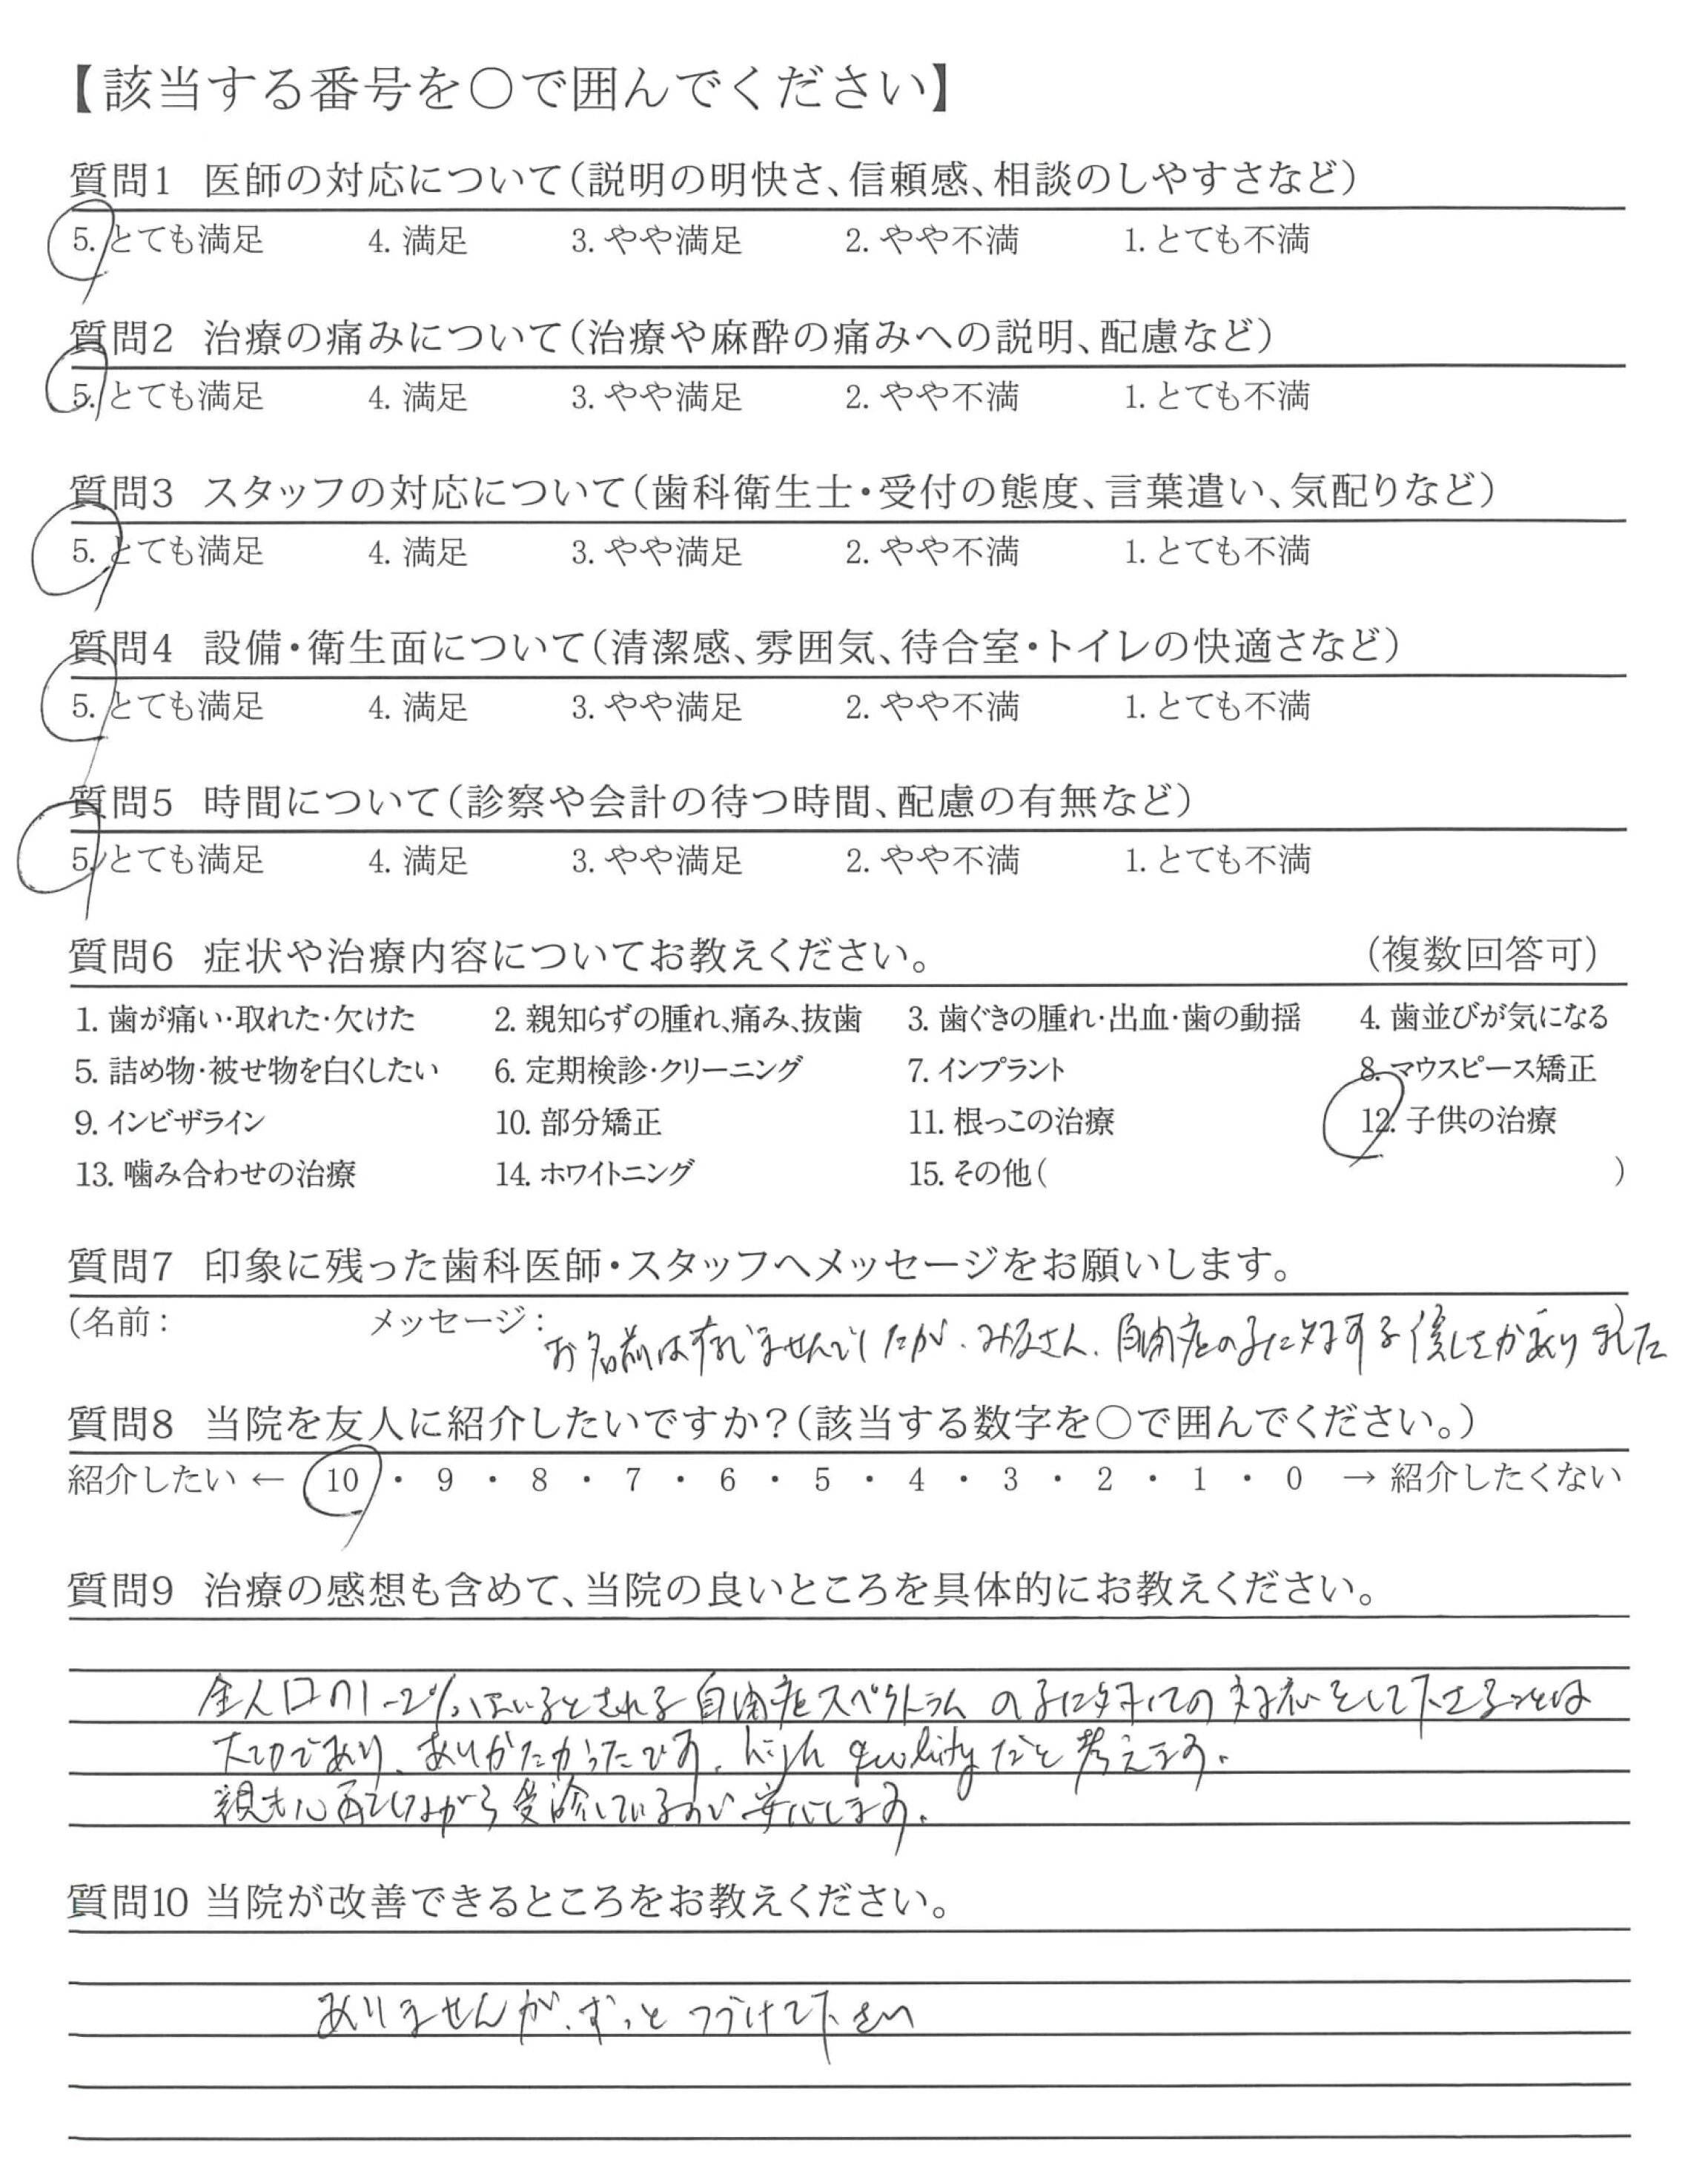 【該当する番号を○で囲んでください】
質問1 医師の対応について(説明の明快さ、信頼感、相談のしやすさなど)
5. とても満足 4. 満足 3. やや満足 2. やや不満 1. とても不満
質問2 治療の痛みについて(治療や麻酔の痛みへの説明、配慮など)
5. とても満足 4. 満足 3. やや満足 2. やや不満 1. とても不満
質問3 スタッフの対応について(歯科衛生士・受付の態度、言葉遣い、気配りなど)
5. とても満足 4. 満足 3. やや満足 2. やや不満 1. とても不満
質問4 設備・衛生面について(清潔感、雰囲気、待合室・トイレの快適さなど)
5. とても満足 4. 満足 3. やや満足 2. やや不満 1. とても不満
質問5 時間について(診察や会計の待つ時間、配慮の有無など)
5. とても満足 4. 満足 3. やや満足 2. やや不満 1. とても不満
質問6 症状や治療内容についてお教えください。 (複数回答可)
1. 歯が痛い・取れた・欠けた 2. 親知らずの腫れ、痛み、抜歯 3. 歯ぐきの腫れ・出血・歯の動揺 4. 歯並びが気になる
5. 詰め物・被せ物を白くしたい 6. 定期検診・クリーニング 7. インプラント 8. マウスピース矯正
9. インビザライン 10. 部分矯正 11. 根っこの治療 12. 子供の治療
13. 噛み合わせの治療 14. ホワイトニング 15. その他( )
質問7 印象に残った歯科医師・スタッフへメッセージをお願いします。
(名前: メッセージ: お名前は存じませんでしたが、みなさん、自閉症の子に対する優しさがありました
質問8 当院を友人に紹介したいですか?(該当する数字を○で囲んでください。)
紹介したい ← 10 ・ 9 ・ 8 ・ 7 ・ 6 ・ 5 ・ 4 ・ 3 ・ 2 ・ 1 ・ 0 → 紹介したくない
質問9 治療の感想も含めて、当院の良いところを具体的にお教えください。
全人口の1-2%はいるとされる自閉症スペクトラムの子に対しての対応をして下さることは
大切であり、ありがたかったです。high qualityだと考えます。
親も心配しながら受診しているので安心します。
質問10 当院が改善できるところをお教えください。
ありませんが、ずっとつづけて下さい